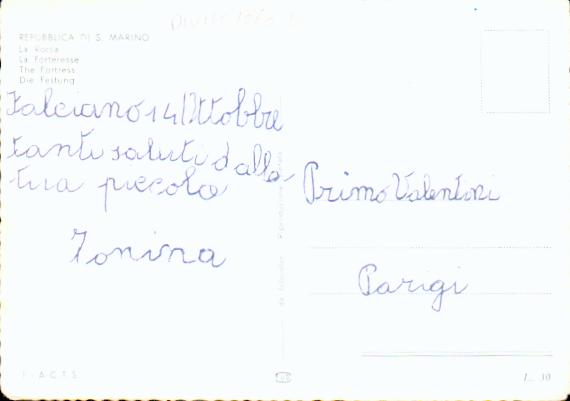 REPUBBLICA DI S. MARINO
La Rocca
La Forteresse
The Fortress
Die Festung
Falciano 14 Ottobbre
Tanti saluti dalla
tua piccola
Tonina
Primo Valentini
Parigi